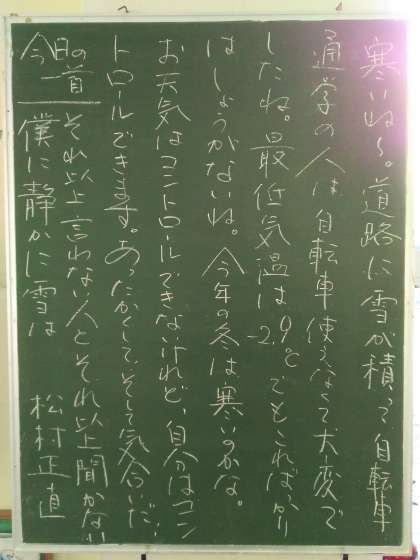 寒いね〜。道路に雪が積って自転車
通学の人は自転車使えなくて大変で
したね。最低気温は-2.9℃でもこればっかり
はしょうがないね。今年の冬は寒いのかな。
お天気はコントロールできないけれど、自分はコン
トロールできます。あったかくして、そして気合いだ!
今日の一首
それ以上言わない人とそれ以上聞かない
僕に静かに雪は 松村正直